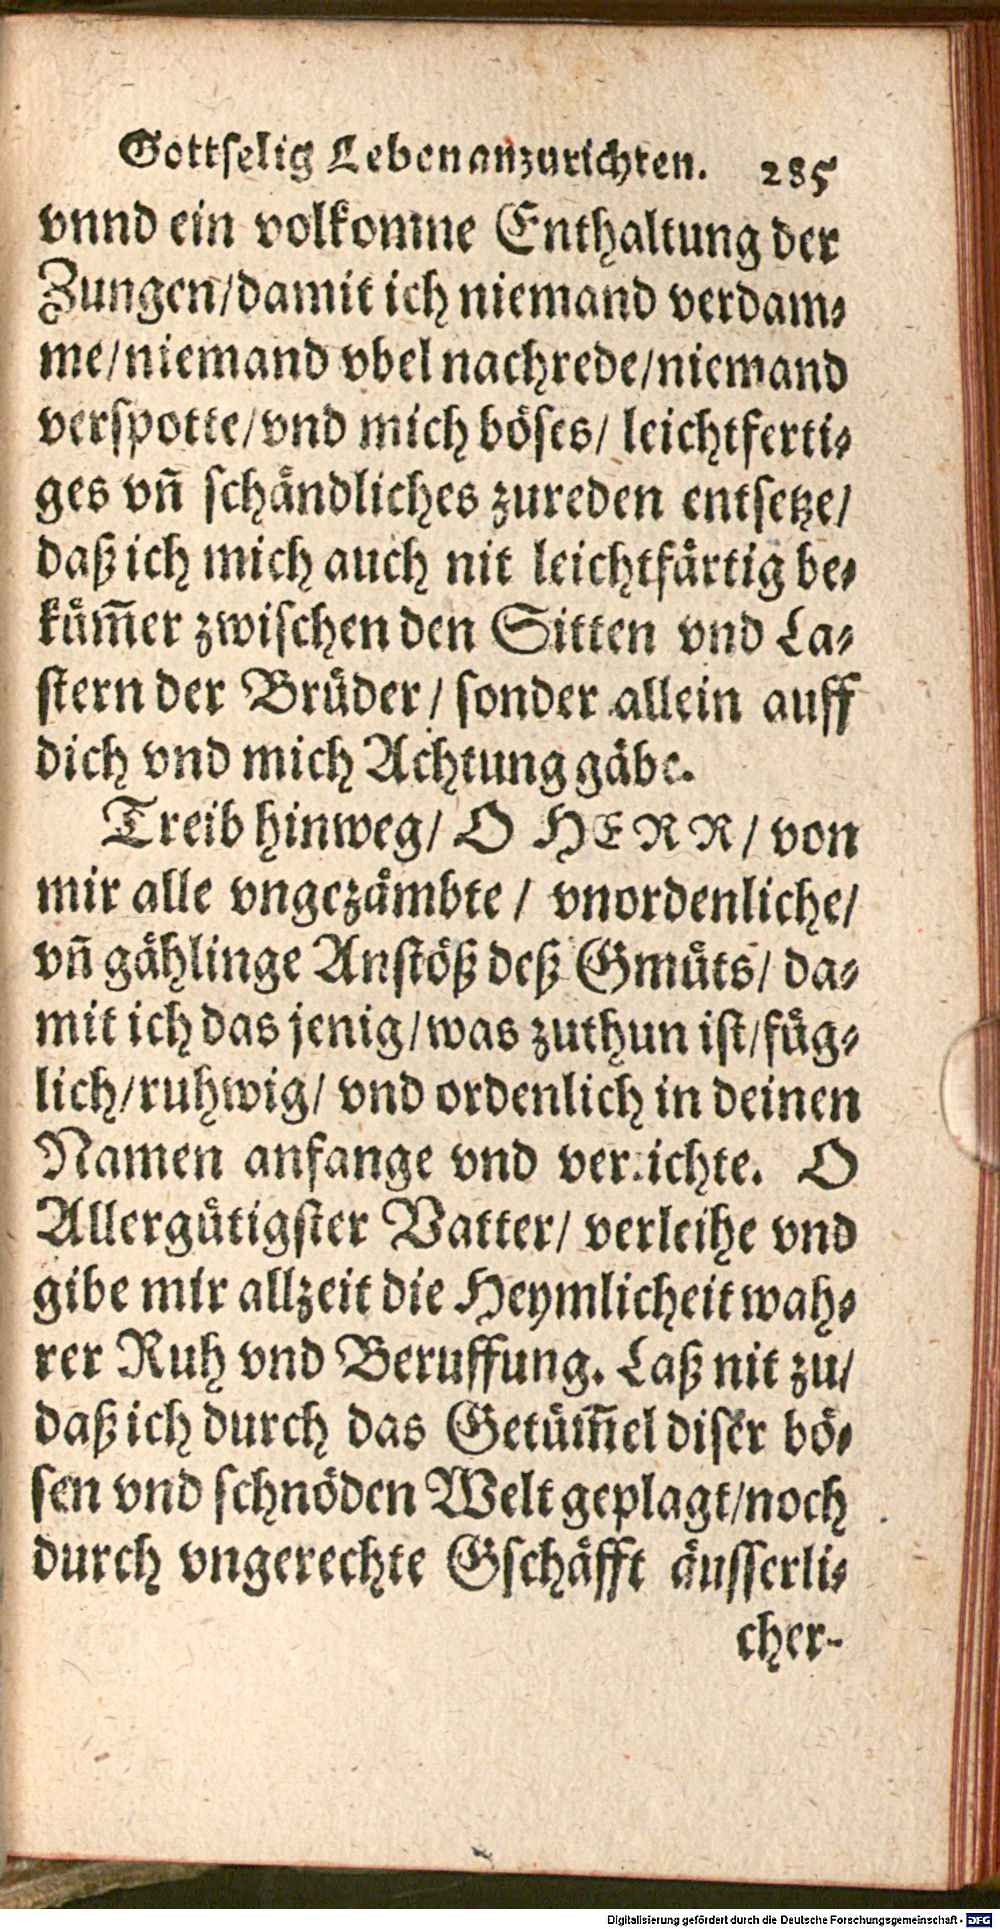 Gottselig Leben anzurichten. 285
vnnd ein volkomne Enthaltung der
Zungen/damit ich niemand verdam-
me/niemand vbel nachrede/niemand
verspotte/vnd mich böses/ leichtferti-
ges vn̄ schändliches zureden entsetze/
daß ich mich auch nit leichtfärtig be-
küm̄er zwischen den Sitten vnd La-
stern der Brüder/ sonder allein auff
dich vnd mich Achtung gäbe.
Treib hinweg/ O HERR/ von
mir alle vngezämbte/ vnordenliche/
vn̄ gählinge Anstöß deß Gmüts/ da-
mit ich das jenig/was zuthun ist/füg-
lich/ruhwig/ vnd ordenlich in deinen
Namen anfange vnd verrichte. O
Allergütigster Vatter/ verleihe vnd
gibe mir allzeit die Heymlicheit wah-
rer Ruh vnd Beruffung. Laß nit zu/
daß ich durch das Getüm̄el diser bö-
sen vnd schnöden Welt geplagt/noch
durch vngerechte Gschäfft äusserli-
cher-
Digitalisierung gefördert durch die Deutsche Forschungsgemeinschaft - DFG